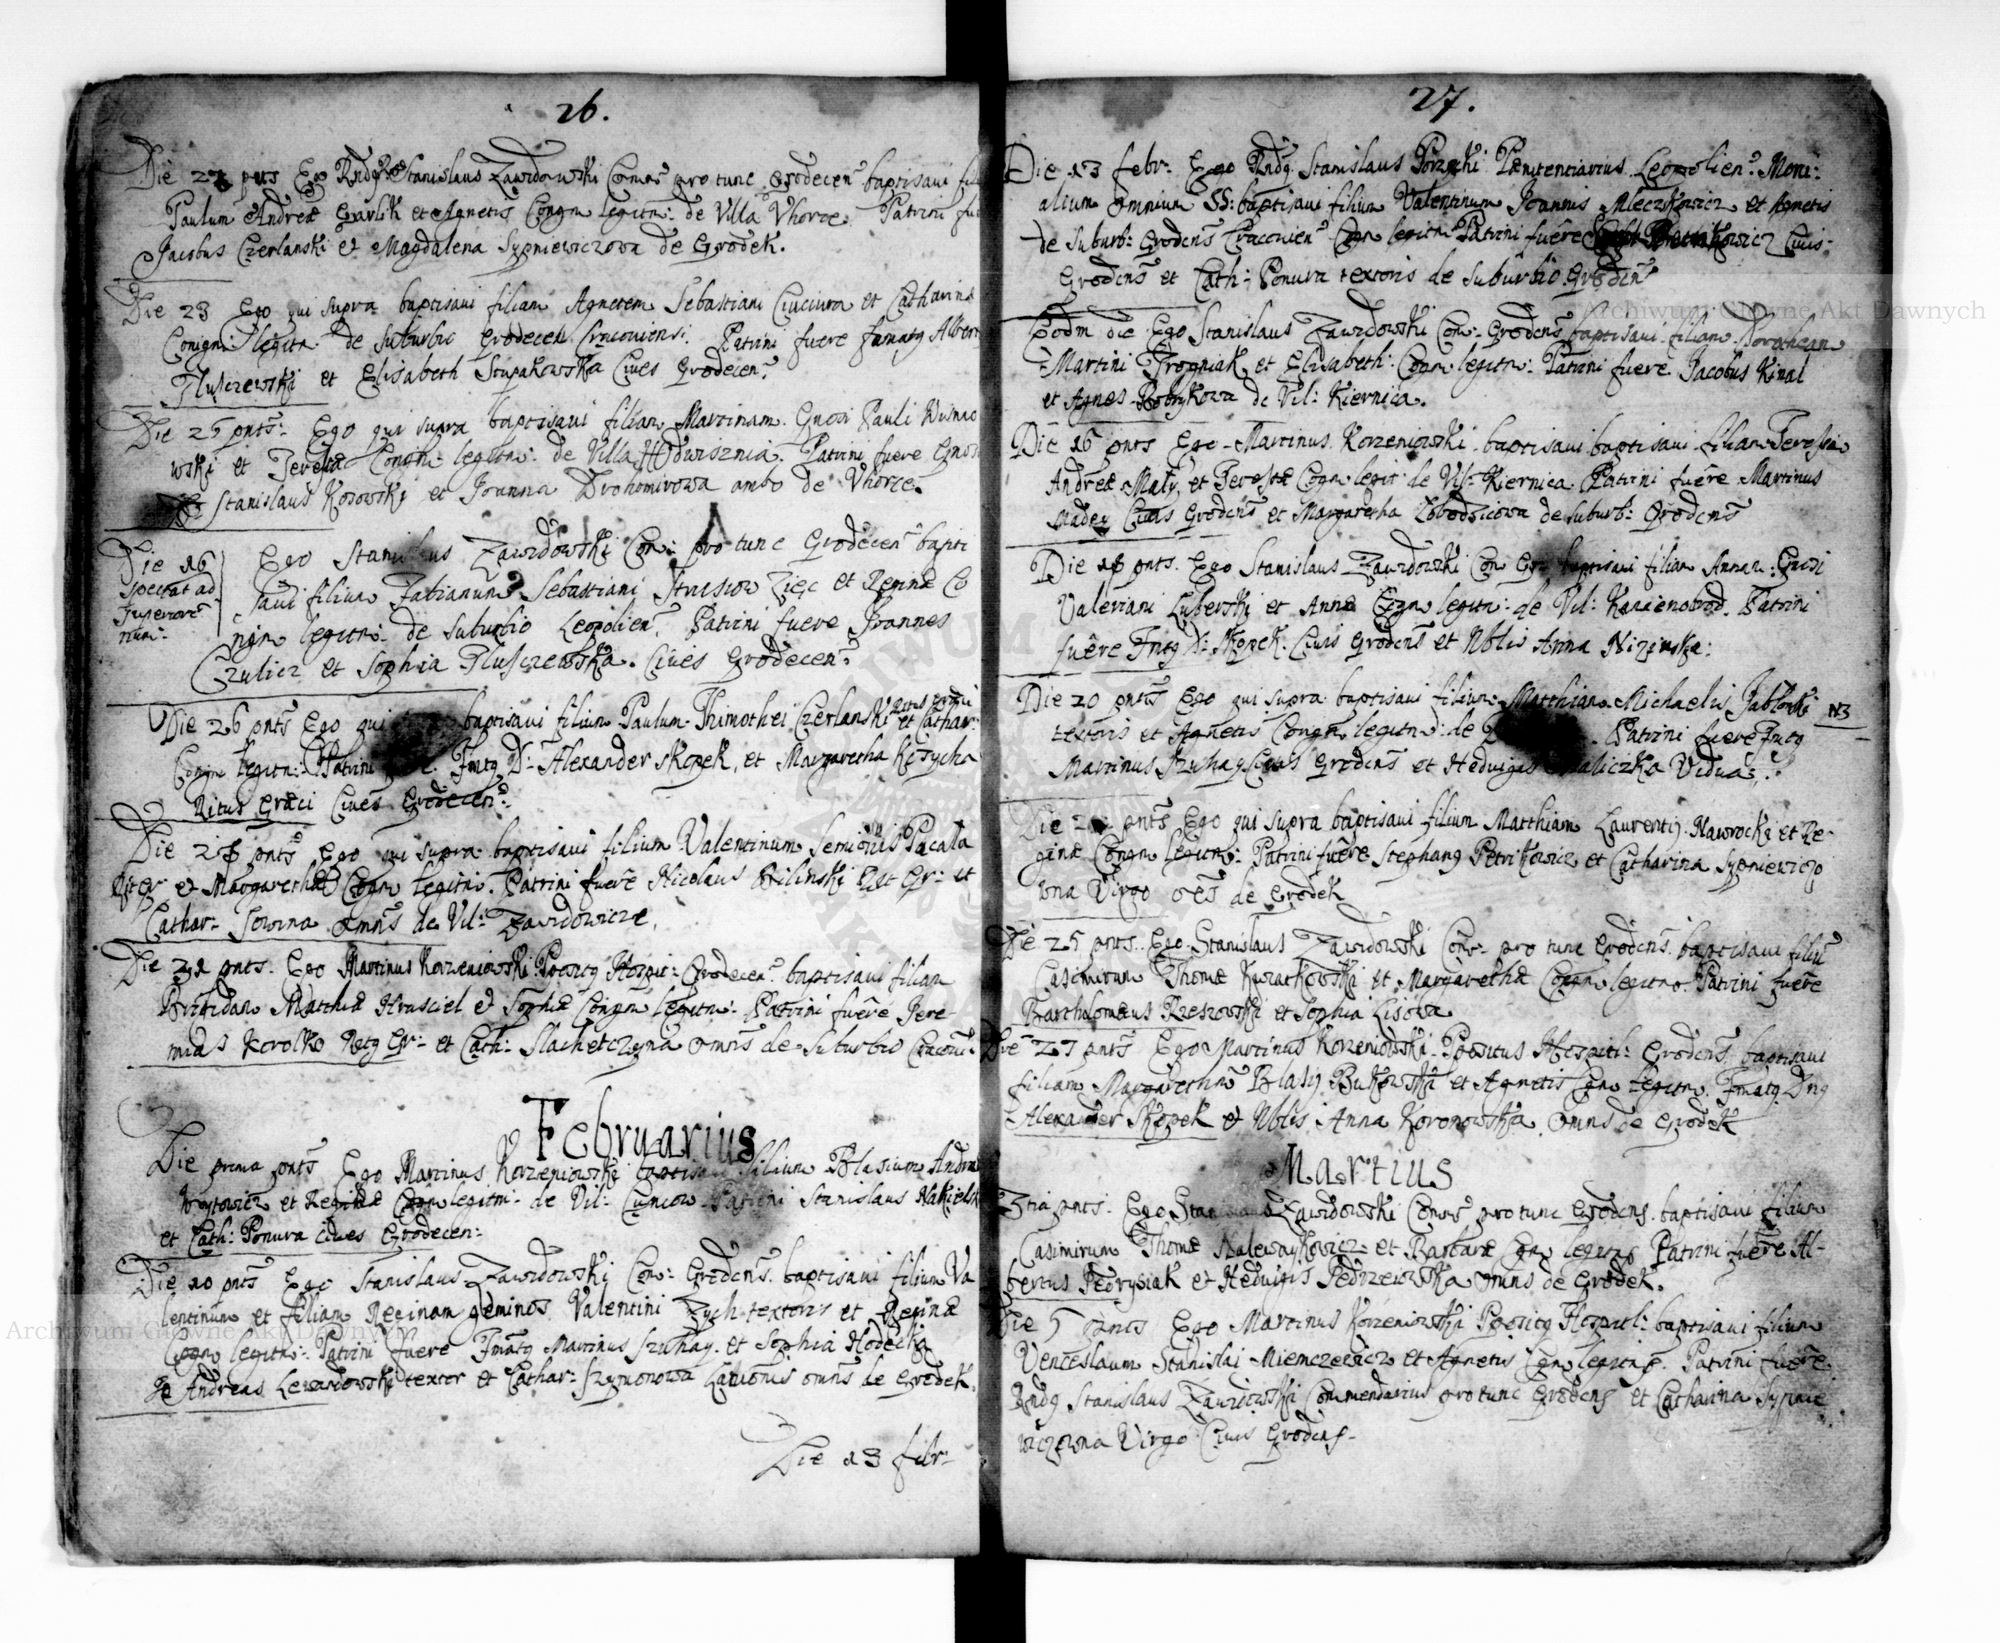 26.
Die 22 pnts Ego Rndg Stanislaus Zawidowski Comrs pro tunc Grodecens baptisavi
Paulum Andreæ Gavlik et Agnetis Congm legitm: de Villa Vhorce. Patrini
Jacobus Czerlanski et Magdalena Sypniewiczowa de Grodek.
Die 23 Ego qui supra baptisavi filiam Agnetem Sebastiani Ciuciura et Catharinæ
Congm: legitm. de suburbio Grodecen Cracoviensi. Patrini fuere famatg
Tluszczewski et Elisabeth Stupakowska Cives Grodecen:
Die 25 pnts: Ego qui supra baptisavi filiam Martinam. Gnosi Pauli
wski et Teresiæ Congm: legitm: de Villa Patrini fuere
Stanislaus Kosowski et Joanna Drohomirowa ambo de Vhorce.
Die 16
spectat ad
superiorem
num:
Ego Zawidowski Com: pro tunc Grodecens bapti
savi filium Fabianum Sebastiani Strusiow Zięc et Reginæ Co
ngm legitm: de suburbio Leopolien: Patrini fuere Joannes
Czulicz et Sophia Pluszczewska. Cives Grodecen:
Die 26 pnts Ego qui baptisavi filium Paulum Thimothei Czerlanski et Cathar:
Congm legitm: Patrini Fmtg D: Alexander Skopek, et Margaretha
Ritus Græci Cives Grodecen:
Die 28 pnts Ego qui supra baptisavi filium Valentinum Semionis Pacala
et Margarethæ Congm legitm: Patrini fuere Nicolaus Bilinski Rit Gr: et
Cathar: omns de Vil: Zawidowicze.
Die pnts. Ego Martinus Korzeniowski Poositg Hospit: Grodecen: baptisavi filiam
Brigidam Matthiæ Hrusciel et Sophiæ Congm legitm: Patrini fuere Jere-
mias Korolko Ritg Gr: et Cath: Slachetczyna omns de suburbio
Februarius
Die prima pnts Ego Martinus Korzeniowski baptisavi filium Blasium
Woytowicz et Reginæ Congm legitm: de Vil: Cuniow Patrini Stanislaus
et Cath: Ponura cives Grodecen:
Die 10 pnts Ego Stanislaus Zawidowski Com: Grodens. baptisavi filium Va
lentinum et filiam Reginam geminos Valentini Zych textoris et Reginæ
Congm legitm: Patrini fuere Fmatg Martinus Szuhay. et Sophia Hodecka
Andreas textor et Cathar: Szymonowa omns de Grodek.
Die 13 febr:
27.
Die 13 febr: Ego Rndg Stanislaus Pænitentiarius Leopolien: Moni:
alium omnium SS: baptisavi filium Valentinum Joannis Mleczkowicz et Agnetis
de Suburb: Grodens Cracovien Congm legitm Patrini fuere Civis
Grodens et Cath: Ponura textoris de suburbio Grodens
Eodm die Ego Stanislaus Zawidowski Com: Grodens baptisavi filiam Dorotheam
Martini et Elisabeth: Congm legitm: Patrini fuere Jacobus Kinal
et Agnes Bobrykowa de Vil: Kiernica.
Die 16 pnts Ego Martinus Korzeniowski baptisavi baptisavi filiam Teressiam
Andreæ Maly et Teresiæ Congm legit: de Vil: Kiernica Patrini fuere Martinus
Madey Civis Grodens et Margaretha de suburb: Grodens
Die 18 pnts. Ego Stanislaus Zawidowski Com Gr: baptisavi filiam Annam:
Valeriani Luberski et Annæ Congm legitm: de Vil: Kamienobrod. Patrini
fuere Fmtg D: Skopek. Civis Grodens et Nblis Anna
Die 20 pnts Ego qui supra baptisavi filium Matthiam Michaelis Jablonski N3
textoris et Agnetis Congm legitm: de Patrini fuere Fmtg
Martinus Szuhay Civis Grodens et Hedvigis Vidua.
Die pnts Ego qui supra baptisavi filium Matthiam Laurentij Nawrocki et Re-
ginæ Congm legitm: Patrini fuere Stephang Petrikowicz et Catharina Sypniewiczo
wna Virgo oes de Grodek
Die 25 pnts. Ego Stanislaus Zawidowski Comr: pro tunc Grodens. baptisavi filiu
Casimirum Thomæ Kwiatkowski et Margarethæ Congm legitm. Patrini fuere
Bartholomæus Rzeszowski et Sophia Lisowa
Die 27 pnts Ego Martinus Korzeniowski Poositus Hospit: Grodens baptisavi
filiam Margaretham Blasij Bukowski et Agnetis Congm legitm. Fmatg Dng
Alexander Skopek et Nblis Anna Koronowska omns de Grodek
Martius
3tia pnts. Ego Zawidowski Comrs pro tunc Grodens. baptisavi filium
Casimirum Thomæ Nalewaykowicz et Barbaræ Congm legitm Patrini fuere Al-
bertus Pedrysiak et Hedvigis Pedrzewska omns de Grodek.
Die 5 pnts Ego Martinus Korzeniowski Poositg Hospitl: baptisavi filium
Venceslaum Stanislai Niemczewicz et Agnetis Congm legitm. Patrini fuere
Rndg Stanislaus Zawidowski Commendarius pro tunc Grodens et Catharina Sypnie
wiczowna Virgo Civis Grodens
Archiwum Główne Akt Dawnych
Archiwum Główne Akt Dawnych